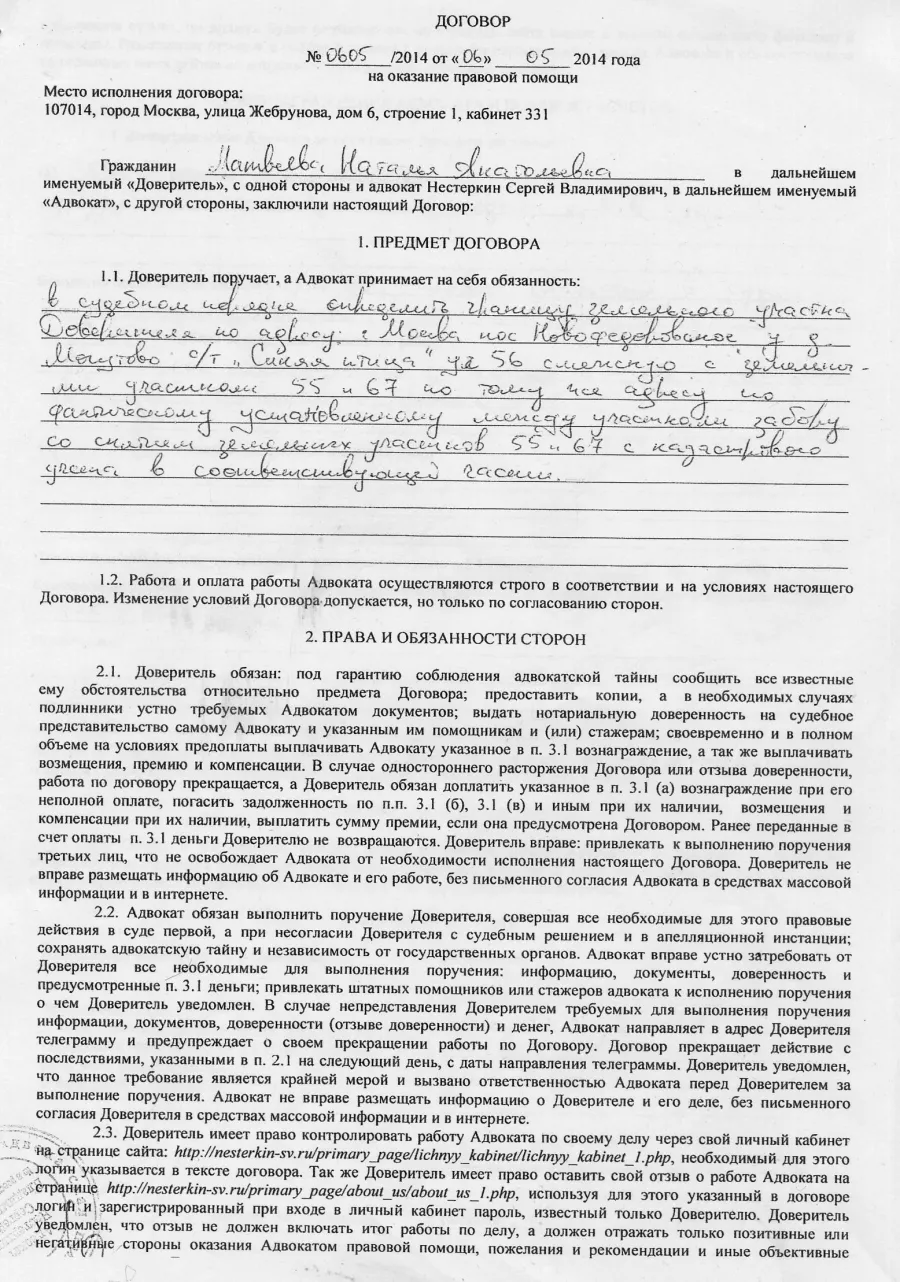 ДОГОВОР
№ 0605 /2014 от «06» 05 2014 года
на оказание правовой помощи
Место исполнения договора:
107014, город Москва, улица Жебрунова, дом 6, строение 1, кабинет 331
Гражданин Матвеева Наталья Анатольевна в дальнейшем
именуемый «Доверитель», с одной стороны и адвокат Нестеркин Сергей Владимирович, в дальнейшем именуемый
«Адвокат», с другой стороны, заключили настоящий Договор:
1. ПРЕДМЕТ ДОГОВОРА
1.1. Доверитель поручает, а Адвокат принимает на себя обязанность:
в судебном порядке определить границу земельного участка
Доверителя по адресу: г Москва пос Новофедоровское у д.
Могутово с/т "Синяя птица" уч 56 смежную с земельны-
ми участками 55 и 67 по тому же адресу по
фактическому установленному между участками забору
со снятием земельных участков 55 и 67 с кадастрового
учета в соответствующей части.
1.2. Работа и оплата работы Адвоката осуществляются строго в соответствии и на условиях настоящего
Договора. Изменение условий Договора допускается, но только по согласованию сторон.
2. ПРАВА И ОБЯЗАННОСТИ СТОРОН
2.1. Доверитель обязан: под гарантию соблюдения адвокатской тайны сообщить все известные
ему обстоятельства относительно предмета Договора; предоставить копии, а в необходимых случаях
подлинники устно требуемых Адвокатом документов; выдать нотариальную доверенность на судебное
представительство самому Адвокату и указанным им помощникам и (или) стажерам; своевременно и в полном
объеме на условиях предоплаты выплачивать Адвокату указанное в п. 3.1 вознаграждение, а так же выплачивать
возмещения, премию и компенсации. В случае одностороннего расторжения Договора или отзыва доверенности,
работа по договору прекращается, а Доверитель обязан доплатить указанное в п. 3.1 (а) вознаграждение при его
неполной оплате, погасить задолженность по п.п. 3.1 (б), 3.1 (в) и иным при их наличии, возмещения и
компенсации при их наличии, выплатить сумму премии, если она предусмотрена Договором. Ранее переданные в
счет оплаты п. 3.1 деньги Доверителю не возвращаются. Доверитель вправе: привлекать к выполнению поручения
третьих лиц, что не освобождает Адвоката от необходимости исполнения настоящего Договора. Доверитель не
вправе размещать информацию об Адвокате и его работе, без письменного согласия Адвоката в средствах массовой
информации и в интернете.
2.2. Адвокат обязан выполнить поручение Доверителя, совершая все необходимые для этого правовые
действия в суде первой, а при несогласии Доверителя с судебным решением и в апелляционной инстанции;
сохранять адвокатскую тайну и независимость от государственных органов. Адвокат вправе устно затребовать от
Доверителя все необходимые для выполнения поручения: информацию, документы, доверенность и
предусмотренные п. 3.1 деньги; привлекать штатных помощников или стажеров адвоката к исполнению поручения
о чем Доверитель уведомлен. В случае непредставления Доверителем требуемых для выполнения поручения
информации, документов, доверенности (отзыве доверенности) и денег, Адвокат направляет в адрес Доверителя
телеграмму и предупреждает о своем прекращении работы по Договору. Договор прекращает действие с
последствиями, указанными в п. 2.1 на следующий день, с даты направления телеграммы. Доверитель уведомлен,
что данное требование является крайней мерой и вызвано ответственностью Адвоката перед Доверителем за
выполнение поручения. Адвокат не вправе размещать информацию о Доверителе и его деле, без письменного
согласия Доверителя в средствах массовой информации и в интернете.
2.3. Доверитель имеет право контролировать работу Адвоката по своему делу через свой личный кабинет
на странице сайта: http://nesterkin-sv.ru/primary_page/lichnyy_kabinet/lichnyy_kabinet_1.php, необходимый для этого
логин указывается в тексте договора. Так же Доверитель имеет право оставить свой отзыв о работе Адвоката на
странице http://nesterkin-sv.ru/primary_page/about_us/about_us_1.php, используя для этого указанный в договоре
логин и зарегистрированный при входе в личный кабинет пароль, известный только Доверителю. Доверитель
уведомлен, что отзыв не должен включать итог работы по делу, а должен отражать только позитивные или
негативные стороны оказания Адвокатом правовой помощи, пожелания и рекомендации и иные объективные